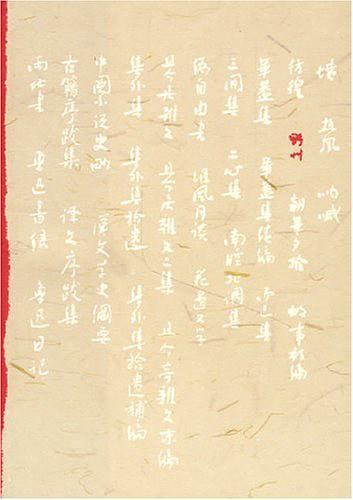 墳 热风 呐喊
彷徨 野草 朝華夕拾 故事新编
華蓋集 華蓋集续编 而已集
三闲集 二心集 南腔北调集
伪自由书 准风月谈 花边文学
且介亭杂文 且介亭杂文二集 且介亭杂文末编
集外集 集外集拾遗 集外集拾遗補编
中国小说史略 汉文学史纲要
古籍序跋集 译文序跋集
两地书 鲁迅书信 鲁迅日记